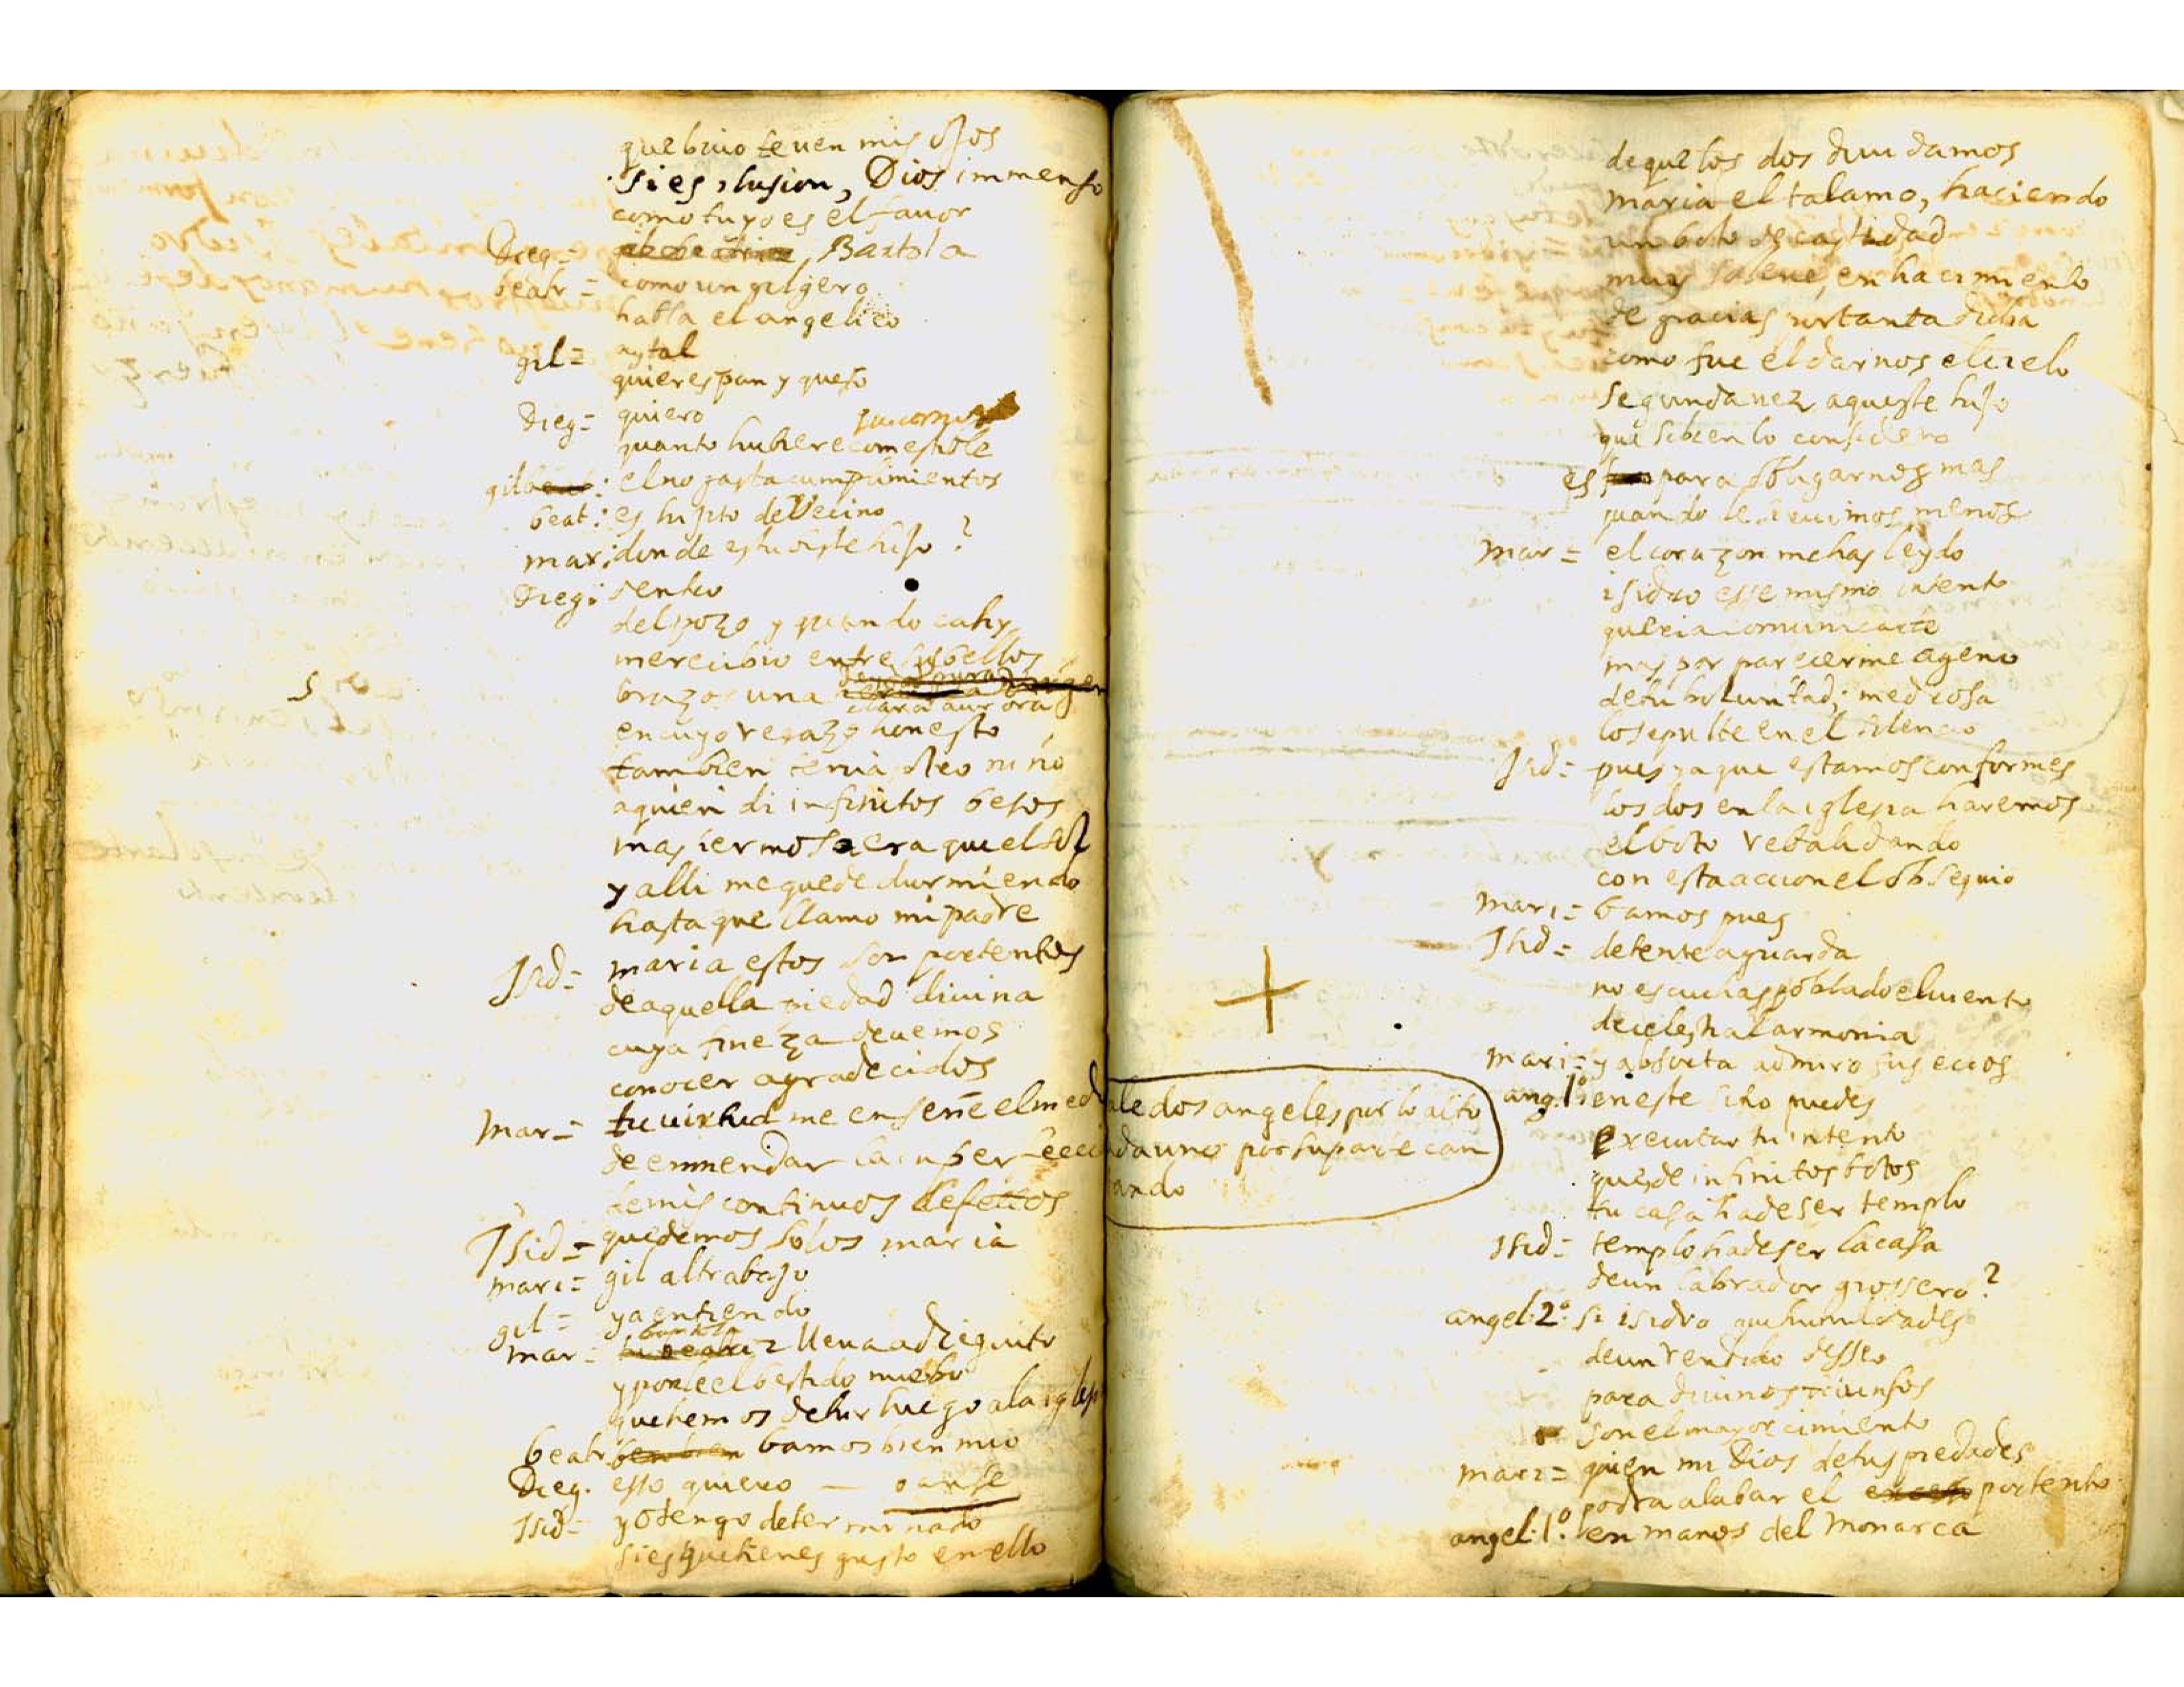 que bivo te ven mis ojos
si es ilusion, Dios immenso
como tuyo es el favor
Dieg= Bartola
beatr= como un gilgero
habla el angelico
gil= ay tal
quieres pan y queso
Dieg= quiero
quanto hubiere comestible
gil: el no gasta cumplimientos
beat: es hijito de Vecino
mar: donde estuviste hijo?
Dieg: dentro
del pozo y quando cahy
me recibio entre sus bellos
brazos una
clara aurora
en cuyo regazo honesto
tambien tenia otro niño
a quien di infinitos besos
mas iermosa era que el sol
y alli me quede durmiendo
hasta que llamo mi padre
Isid= maria estos son portentos
de aquella piedad divina
cuya fineza devemos
conocer agradecidos
mar= tu virtud me enseñe el med
de enmendar la imperfecci
de mis continuos defectos
Isid= quedemos solos maria
mari= gil al trabajo
gil= ya entiendo
bartola
mar= lleva a dieguito
y ponle el bestido nuebo
que hemos de hir luego a la igles
beatr bamos bien mio
Dieg. esso quiero — vanse
Isid= yo tengo determinado
si es que tienes gusto en ello
de que los dos dividamos
maria el talamo, haciendo
un boto de castidad
muy solene, en hacimiento
de gracias por tanta dicha
como fue el darnos el cielo
segunda vez aqueste hijo
que si bien lo considero
es para obligarnos mas
quando le servimos menos
mar= el corazon me has leydo
isidro esse mismo intento
queria comunicarte
mas por parecerme ageno
de tu boluntad; medrosa
lo sepulte en el silencio
Isid= pues ya que estamos conformes
los dos en la iglesia haremos
el boto rebalidando
con esta accion el obsequio
mari= bamos pues
Isid= detente aguarda
no escuchas poblado el viento
de celestial armonia
mari= y absorta admiro sus ecos
ale dos angeles por lo alto
da uno por su parte can
tando
ang. 1º en este sitio puedes
executar tu intento
que de infinitos botos
tu casa ha de ser templo
Isid= templo ha de ser la casa
de un labrador grossero?
angel. 2º si isidro que humildades
de un rendido desseo
para divinos triunfos
son el mayor cimiento
mari= quien mi Dios de tus piedades
podra alabar el portento
angel. 1º en manos del Monarca